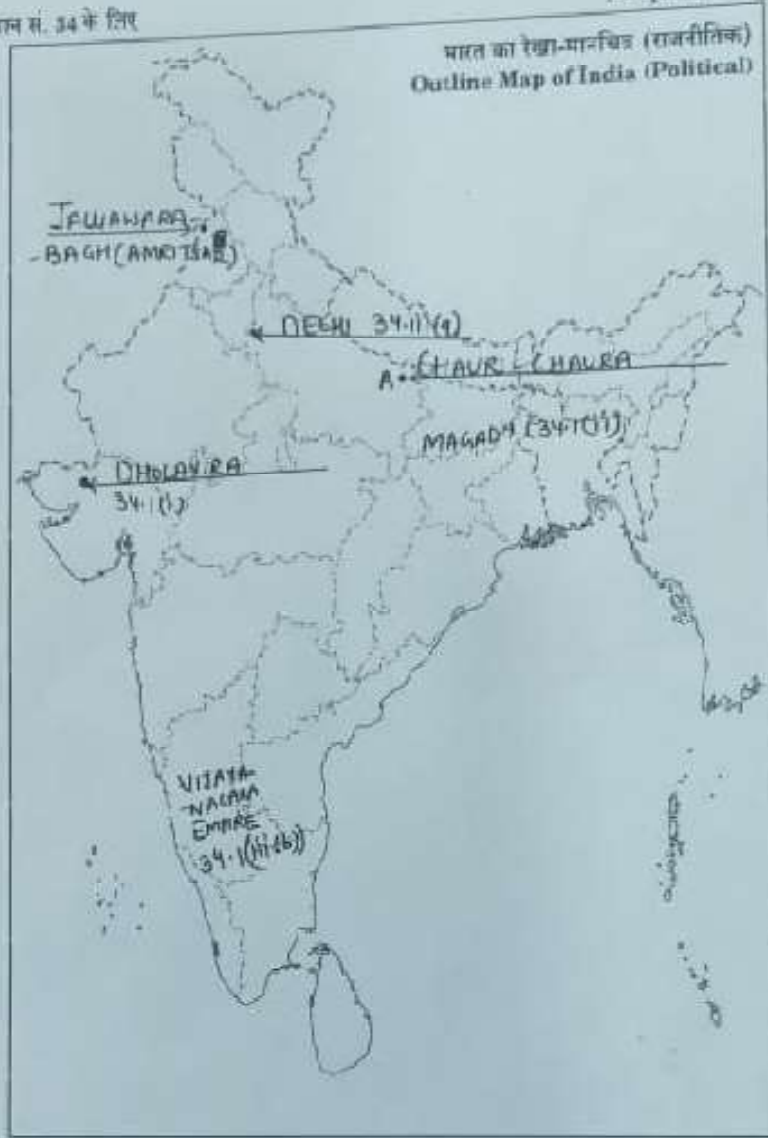 सं. 34 के लिए
भारत का रेखा-मानचित्र (राजनीतिक)
Outline Map of India (Political)
- BAGH (AMRITSAR)
DELHI 34.11 (a)
A CHAURI - CHAURA
MAGADH (34.1(ii))
DHOLAVIRA
34.1 (i)
VIJAYA-
-NAGARA
EMPIRE
34.1(iii.(b))